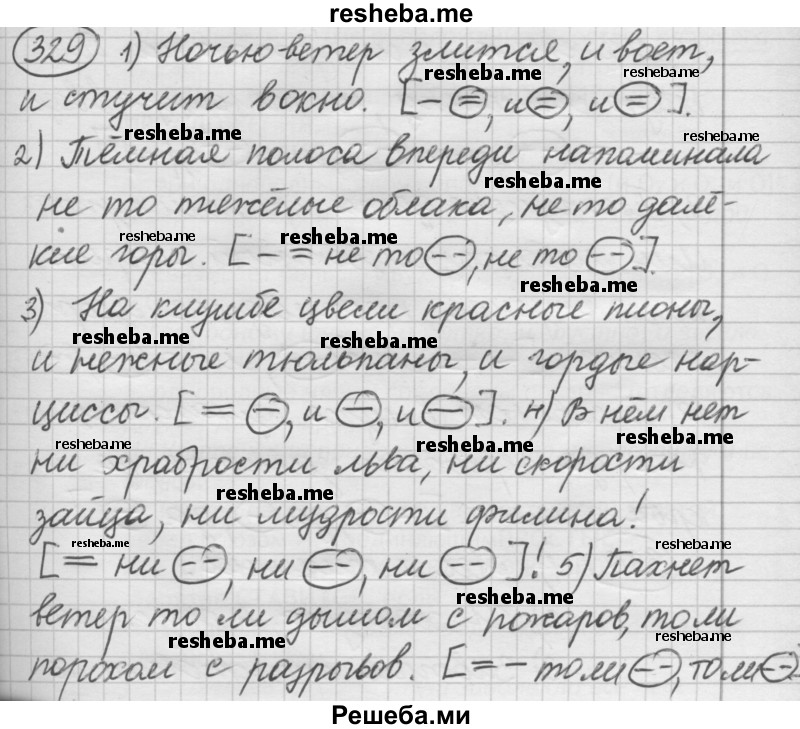 resheba.me
329 1) Ночью ветер злится, и воет,
resheba.me resheba.me
и стучит в окно. [– =, и =, и =].
resheba.me resheba.me
2) Тёмная полоса впереди напоминала
resheba.me
не то тяжёлые облака, не то далё-
resheba.me resheba.me
кие горы. [– = не то --, не то --].
resheba.me
3) На клумбе цвели красные пионы,
resheba.me resheba.me
и нежные тюльпаны, и гордые нар-
циссы. [= –, и –, и –]. 4) В нём нет
resheba.me resheba.me resheba.me
ни храбрости льва, ни скорости
resheba.me
зайца, ни мудрости филина!
resheba.me resheba.me
[= ни --, ни --, ни --]! 5) Пахнет
ветер то ли дымом с пожаров, то ли
resheba.me resheba.me
порохом с разрывов. [= – то ли --, то ли --]
Решеба.ми